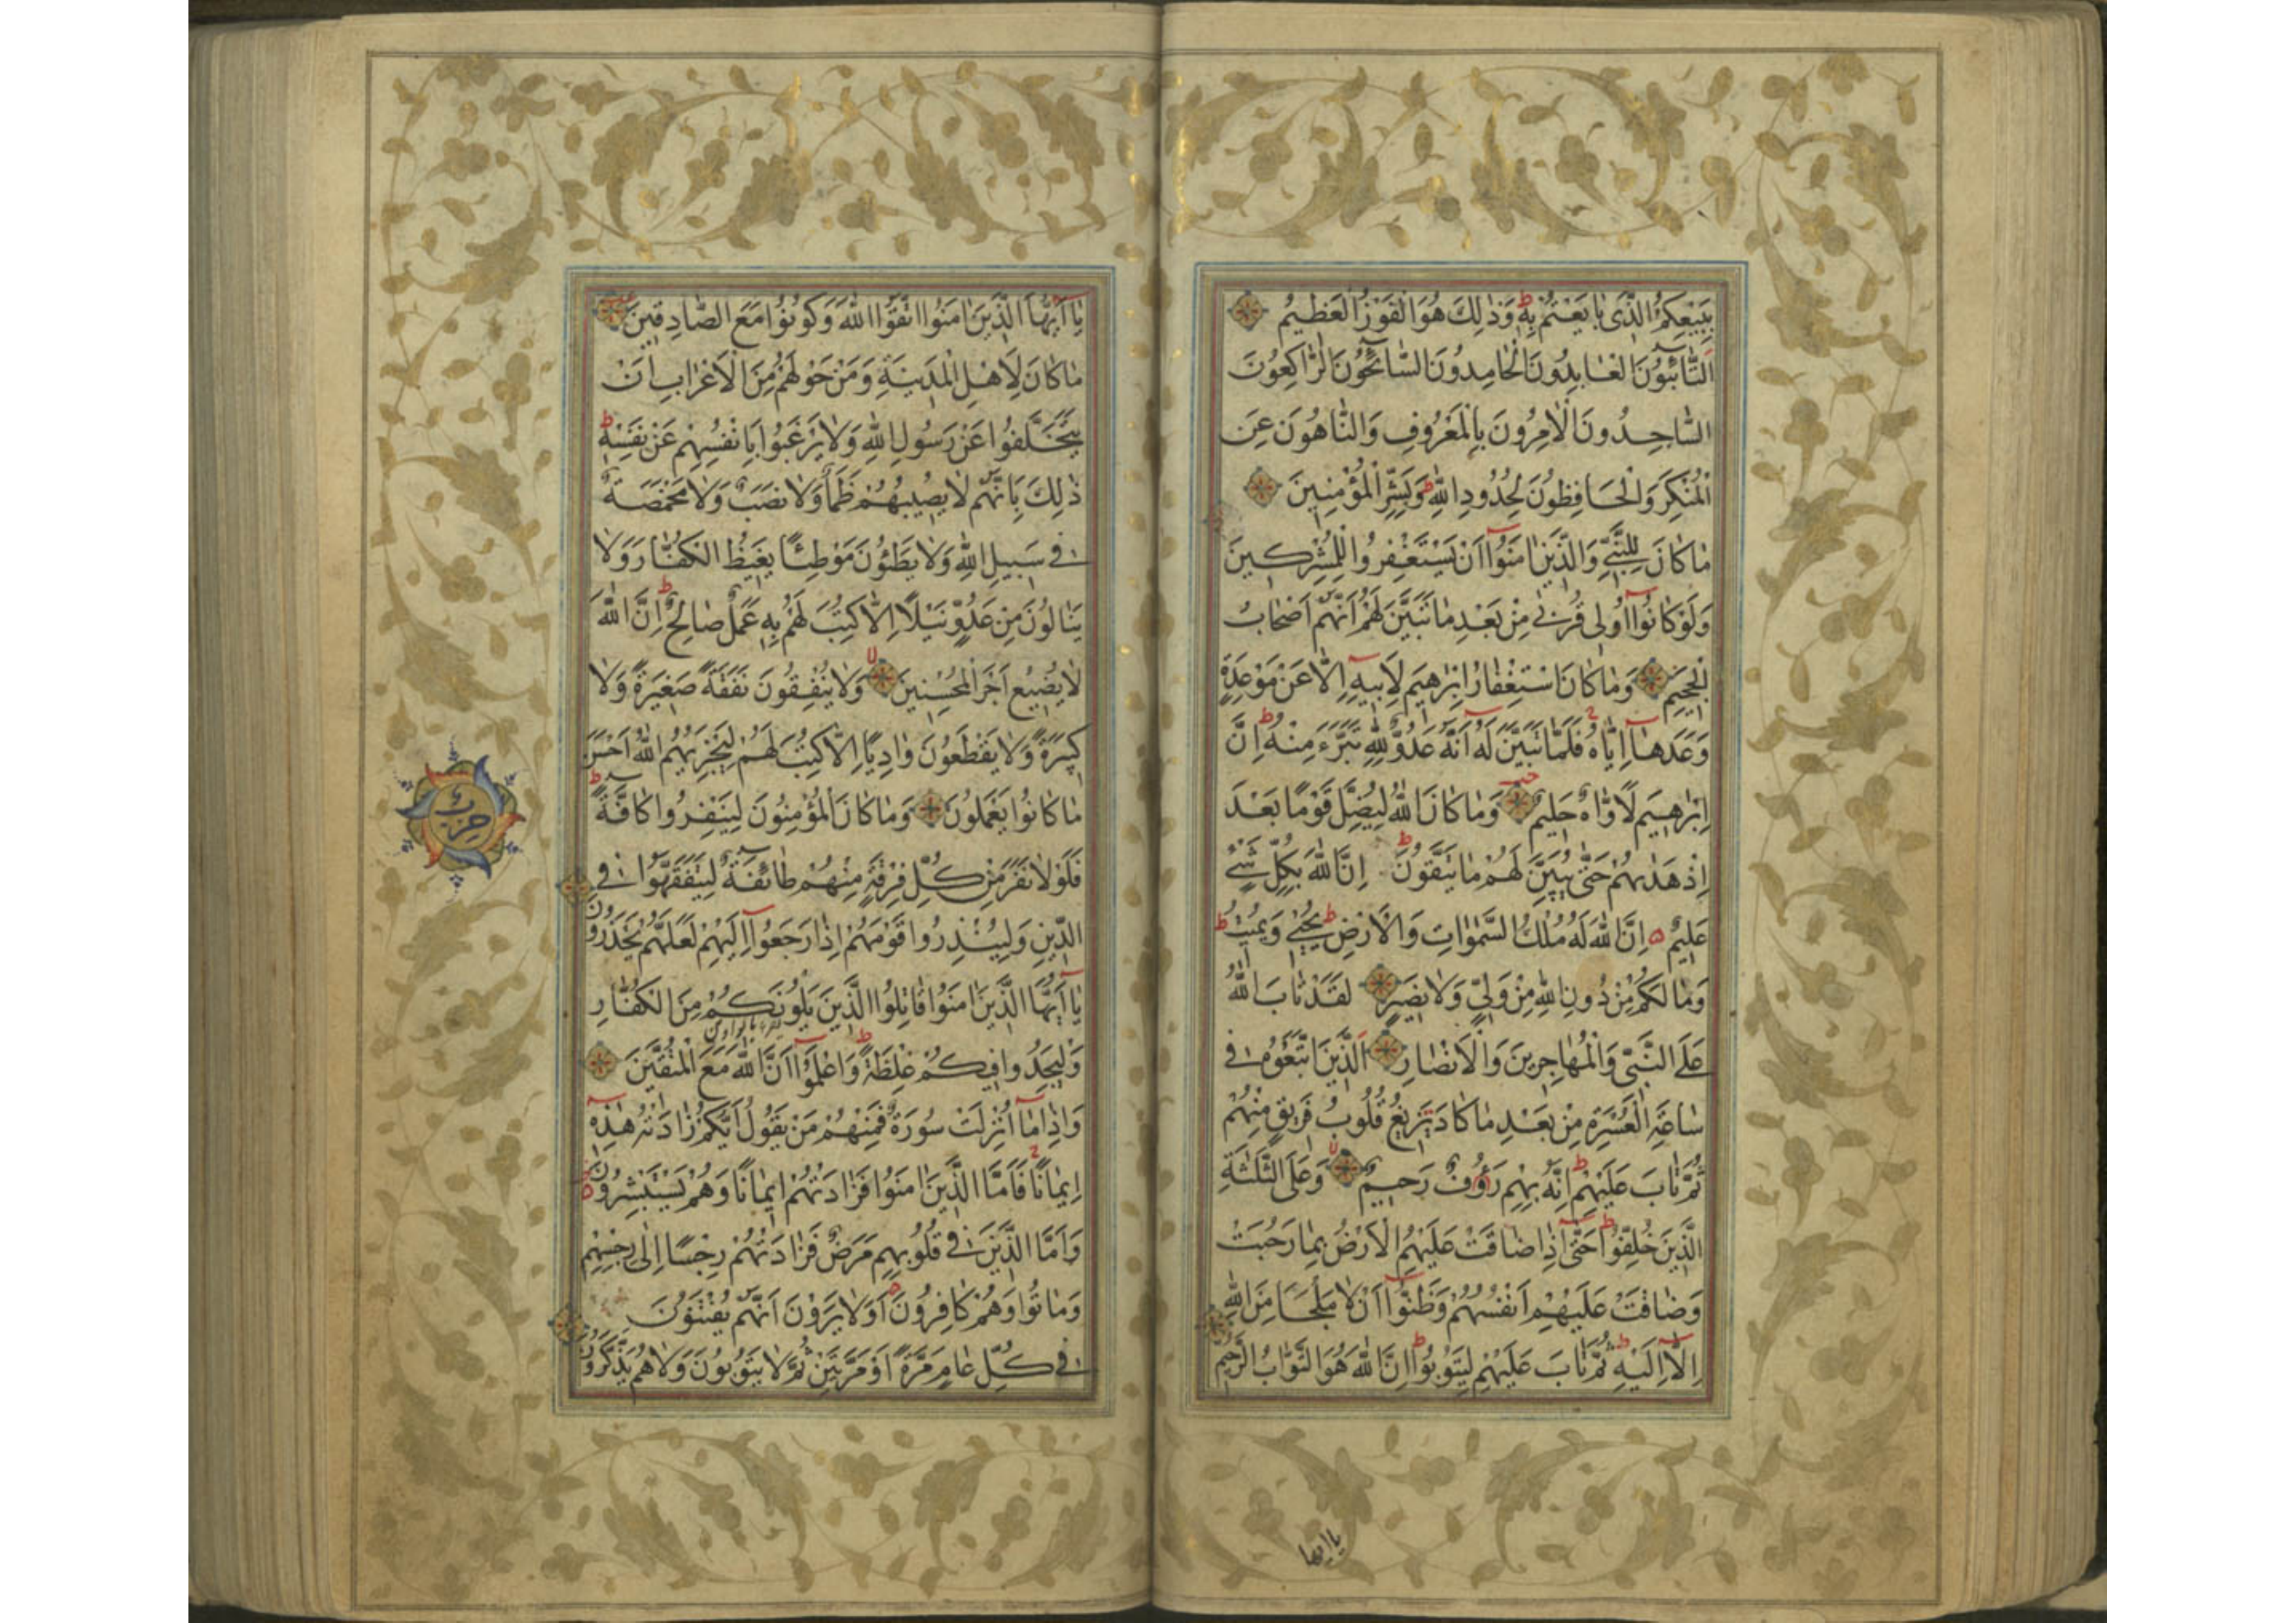 بِبَيْعِكُمُ الَّذِى بَايَعْتُمْ بِهِ وَذٰلِكَ هُوَ الْفَوْزُ الْعَظِيمُ
اَلتَّائِبُونَ الْعَابِدُونَ الْحَامِدُونَ السَّائِحُونَ الرَّاكِعُونَ
السَّاجِدُونَ الْاٰمِرُونَ بِالْمَعْرُوفِ وَالنَّاهُونَ عَنِ
الْمُنْكَرِ وَالْحَافِظُونَ لِحُدُودِ اللّٰهِ وَبَشِّرِ الْمُؤْمِنِينَ
مَا كَانَ لِلنَّبِيِّ وَالَّذِينَ اٰمَنُوا اَنْ يَسْتَغْفِرُوا لِلْمُشْرِكِينَ
وَلَوْ كَانُوا اُولِى قُرْبٰى مِنْ بَعْدِ مَا تَبَيَّنَ لَهُمْ اَنَّهُمْ اَصْحَابُ
الْجَحِيمِ وَمَا كَانَ اسْتِغْفَارُ اِبْرٰهِيمَ لِاَبِيهِ اِلَّا عَنْ مَوْعِدَةٍ
وَعَدَهَا اِيَّاهُ فَلَمَّا تَبَيَّنَ لَهُ اَنَّهُ عَدُوٌّ لِلّٰهِ تَبَرَّءَ مِنْهُ اِنَّ
اِبْرٰهِيمَ لَاَوَّاهٌ حَلِيمٌ وَمَا كَانَ اللّٰهُ لِيُضِلَّ قَوْمًا بَعْدَ
اِذْ هَدٰيهُمْ حَتّٰى يُبَيِّنَ لَهُمْ مَا يَتَّقُونَ اِنَّ اللّٰهَ بِكُلِّ شَىْءٍ
عَلِيمٌ اِنَّ اللّٰهَ لَهُ مُلْكُ السَّمٰوَاتِ وَالْاَرْضِ يُحْيِى وَيُمِيتُ
وَمَا لَكُمْ مِنْ دُونِ اللّٰهِ مِنْ وَلِيٍّ وَلَا نَصِيرٍ لَقَدْ تَابَ اللّٰهُ
عَلَى النَّبِيِّ وَالْمُهَاجِرِينَ وَالْاَنْصَارِ اَلَّذِينَ اتَّبَعُوهُ فِى
سَاعَةِ الْعُسْرَةِ مِنْ بَعْدِ مَا كَادَ يَزِيغُ قُلُوبُ فَرِيقٍ مِنْهُمْ
ثُمَّ تَابَ عَلَيْهِمْ اِنَّهُ بِهِمْ رَؤُفٌ رَحِيمٌ وَعَلَى الثَّلٰثَةِ
الَّذِينَ خُلِّفُوا حَتّٰى اِذَا ضَاقَتْ عَلَيْهِمُ الْاَرْضُ بِمَا رَحُبَتْ
وَضَاقَتْ عَلَيْهِمْ اَنْفُسُهُمْ وَظَنُّوا اَنْ لَا مَلْجَاَ مِنَ اللّٰهِ
اِلَّا اِلَيْهِ ثُمَّ تَابَ عَلَيْهِمْ لِيَتُوبُوا اِنَّ اللّٰهَ هُوَ التَّوَّابُ الرَّحِيمُ
ياايها
يَا اَيُّهَا الَّذِينَ اٰمَنُوا اتَّقُوا اللّٰهَ وَكُونُوا مَعَ الصَّادِقِينَ
مَا كَانَ لِاَهْلِ الْمَدِينَةِ وَمَنْ حَوْلَهُمْ مِنَ الْاَعْرَابِ اَنْ
يَتَخَلَّفُوا عَنْ رَسُولِ اللّٰهِ وَلَا يَرْغَبُوا بِاَنْفُسِهِمْ عَنْ نَفْسِهِ
ذٰلِكَ بِاَنَّهُمْ لَا يُصِيبُهُمْ ظَمَاٌ وَلَا نَصَبٌ وَلَا مَخْمَصَةٌ
فِى سَبِيلِ اللّٰهِ وَلَا يَطَئُونَ مَوْطِئًا يَغِيظُ الْكُفَّارَ وَلَا
يَنَالُونَ مِنْ عَدُوٍّ نَيْلًا اِلَّا كُتِبَ لَهُمْ بِهِ عَمَلٌ صَالِحٌ اِنَّ اللّٰهَ
لَا يُضِيعُ اَجْرَ الْمُحْسِنِينَ وَلَا يُنْفِقُونَ نَفَقَةً صَغِيرَةً وَلَا
كَبِيرَةً وَلَا يَقْطَعُونَ وَادِيًا اِلَّا كُتِبَ لَهُمْ لِيَجْزِيَهُمُ اللّٰهُ اَحْسَنَ
مَا كَانُوا يَعْمَلُونَ وَمَا كَانَ الْمُؤْمِنُونَ لِيَنْفِرُوا كَافَّةً
حزب
فَلَوْلَا نَفَرَ مِنْ كُلِّ فِرْقَةٍ مِنْهُمْ طَائِفَةٌ لِيَتَفَقَّهُوا فِى
الدِّينِ وَلِيُنْذِرُوا قَوْمَهُمْ اِذَا رَجَعُوا اِلَيْهِمْ لَعَلَّهُمْ يَحْذَرُونَ
يَا اَيُّهَا الَّذِينَ اٰمَنُوا قَاتِلُوا الَّذِينَ يَلُونَكُمْ مِنَ الْكُفَّارِ
وَلْيَجِدُوا فِيكُمْ غِلْظَةً وَاعْلَمُوا اَنَّ اللّٰهَ مَعَ الْمُتَّقِينَ
وَاِذَا مَا اُنْزِلَتْ سُورَةٌ فَمِنْهُمْ مَنْ يَقُولُ اَيُّكُمْ زَادَتْهُ هٰذِهِ
اِيمَانًا فَاَمَّا الَّذِينَ اٰمَنُوا فَزَادَتْهُمْ اِيمَانًا وَهُمْ يَسْتَبْشِرُونَ
وَاَمَّا الَّذِينَ فِى قُلُوبِهِمْ مَرَضٌ فَزَادَتْهُمْ رِجْسًا اِلٰى رِجْسِهِمْ
وَمَاتُوا وَهُمْ كَافِرُونَ اَوَلَا يَرَوْنَ اَنَّهُمْ يُفْتَنُونَ
فِى كُلِّ عَامٍ مَرَّةً اَوْ مَرَّتَيْنِ ثُمَّ لَا يَتُوبُونَ وَلَا هُمْ يَذَّكَّرُونَ